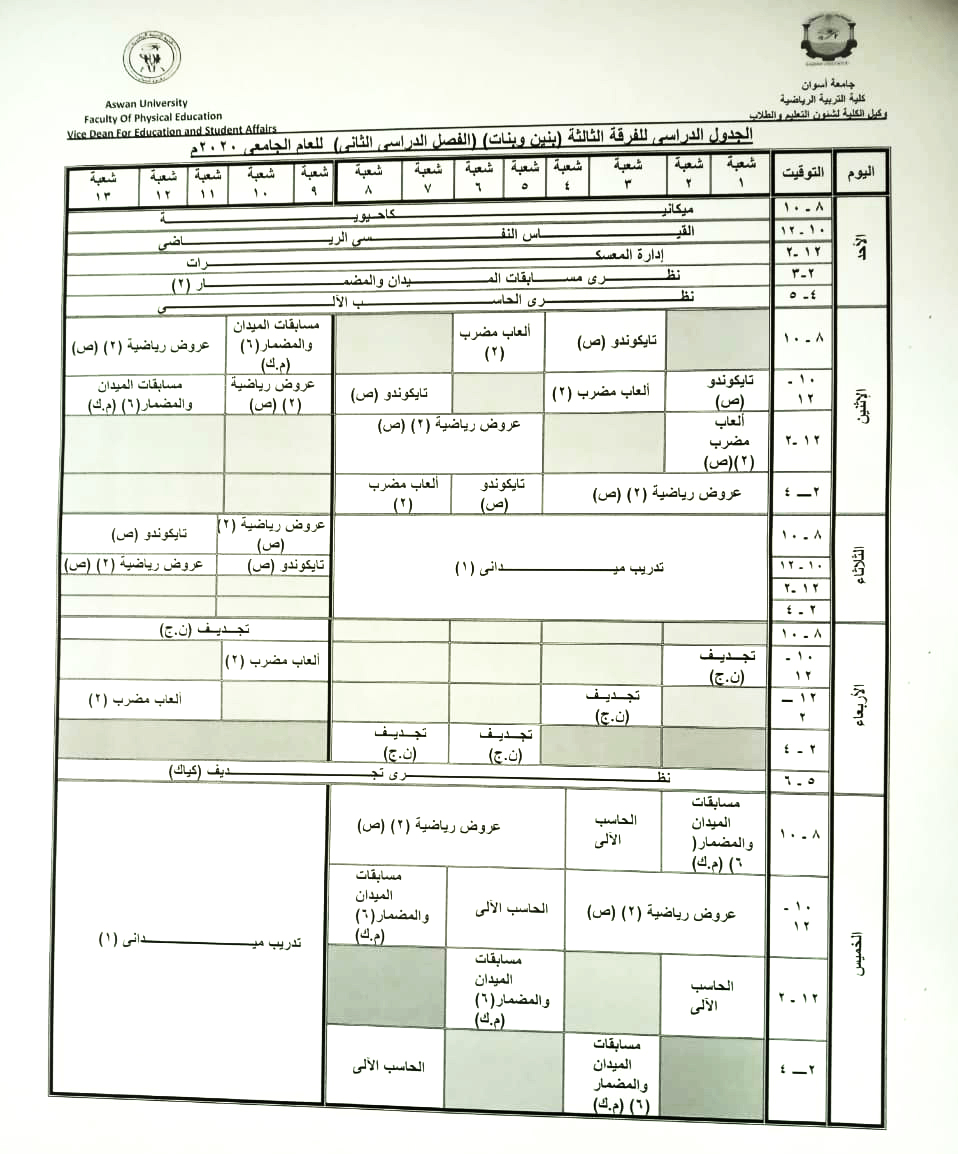 Aswan University
Faculty Of Physical Education
Vice Dean For Education and Student Affairs
جامعة أسوان
كلية التربية الرياضية
وكيل الكلية لشئون التعليم والطلاب
الجدول الدراسى للفرقة الثالثة (بنين وبنات) (الفصل الدراسى الثانى) للعام الجامعى ٢٠٢٠م
اليوم التوقيت شعبة ١ شعبة ٢ شعبة ٣ شعبة ٤ شعبة ٥ شعبة ٦ شعبة ٧ شعبة ٨ شعبة ٩ شعبة ١٠ شعبة ١١ شعبة ١٢ شعبة ١٣
الأحد
٨ - ١٠ ميكانيـــكا حيويـــة
١٠-١٢ القيـــاس النفـــسى الريـــاضى
١٢ -٢ إدارة المعسكـــرات
٢-٣ نظـــرى مســـابقات الميـــدان والمضمـــار (٢)
٤- ٥ نظـــرى الحاســـب الآلـــى
الإثنين
٨ - ١٠ تايكوندو (ص) ألعاب مضرب (٢) مسابقات الميدان والمضمار(٦) (م.ك) عروض رياضية (٢) (ص)
١٠ - ١٢ تايكوندو (ص) ألعاب مضرب (٢) تايكوندو (ص) عروض رياضية (٢) (ص) مسابقات الميدان والمضمار(٦) (م.ك)
١٢ -٢ ألعاب مضرب (٢)(ص) عروض رياضية (٢) (ص)
٢ـــ ٤ عروض رياضية (٢) (ص) تايكوندو (ص) ألعاب مضرب (٢)
الثلاثاء
٨ - ١٠ تدريب ميـــدانى (١) عروض رياضية (٢) (ص) تايكوندو (ص)
١٠-١٢ تايكوندو (ص) عروض رياضية (٢) (ص)
١٢ -٢
٢ - ٤
الأربعاء
٨ - ١٠ تجـــديـــف (ن.ج)
١٠ - ١٢ تجـــديـــف (ن.ج) ألعاب مضرب (٢)
١٢ ــ ٢ تجـــديـــف (ن.ج) ألعاب مضرب (٢)
٢ - ٤ تجـــديـــف (ن.ج) تجـــديـــف (ن.ج)
٥ - ٦ نظـــرى تجـــديف (كياك)
الخميس
٨ - ١٠ مسابقات الميدان والمضمار( ٦) (م.ك) الحاسب الآلى عروض رياضية (٢) (ص) تدريب ميـــدانى (١)
١٠ - ١٢ عروض رياضية (٢) (ص) الحاسب الآلى مسابقات الميدان والمضمار(٦) (م.ك)
١٢ - ٢ الحاسب الآلى مسابقات الميدان والمضمار(٦) (م.ك)
٢ـــ ٤ مسابقات الميدان والمضمار (٦) (م.ك) الحاسب الآلى